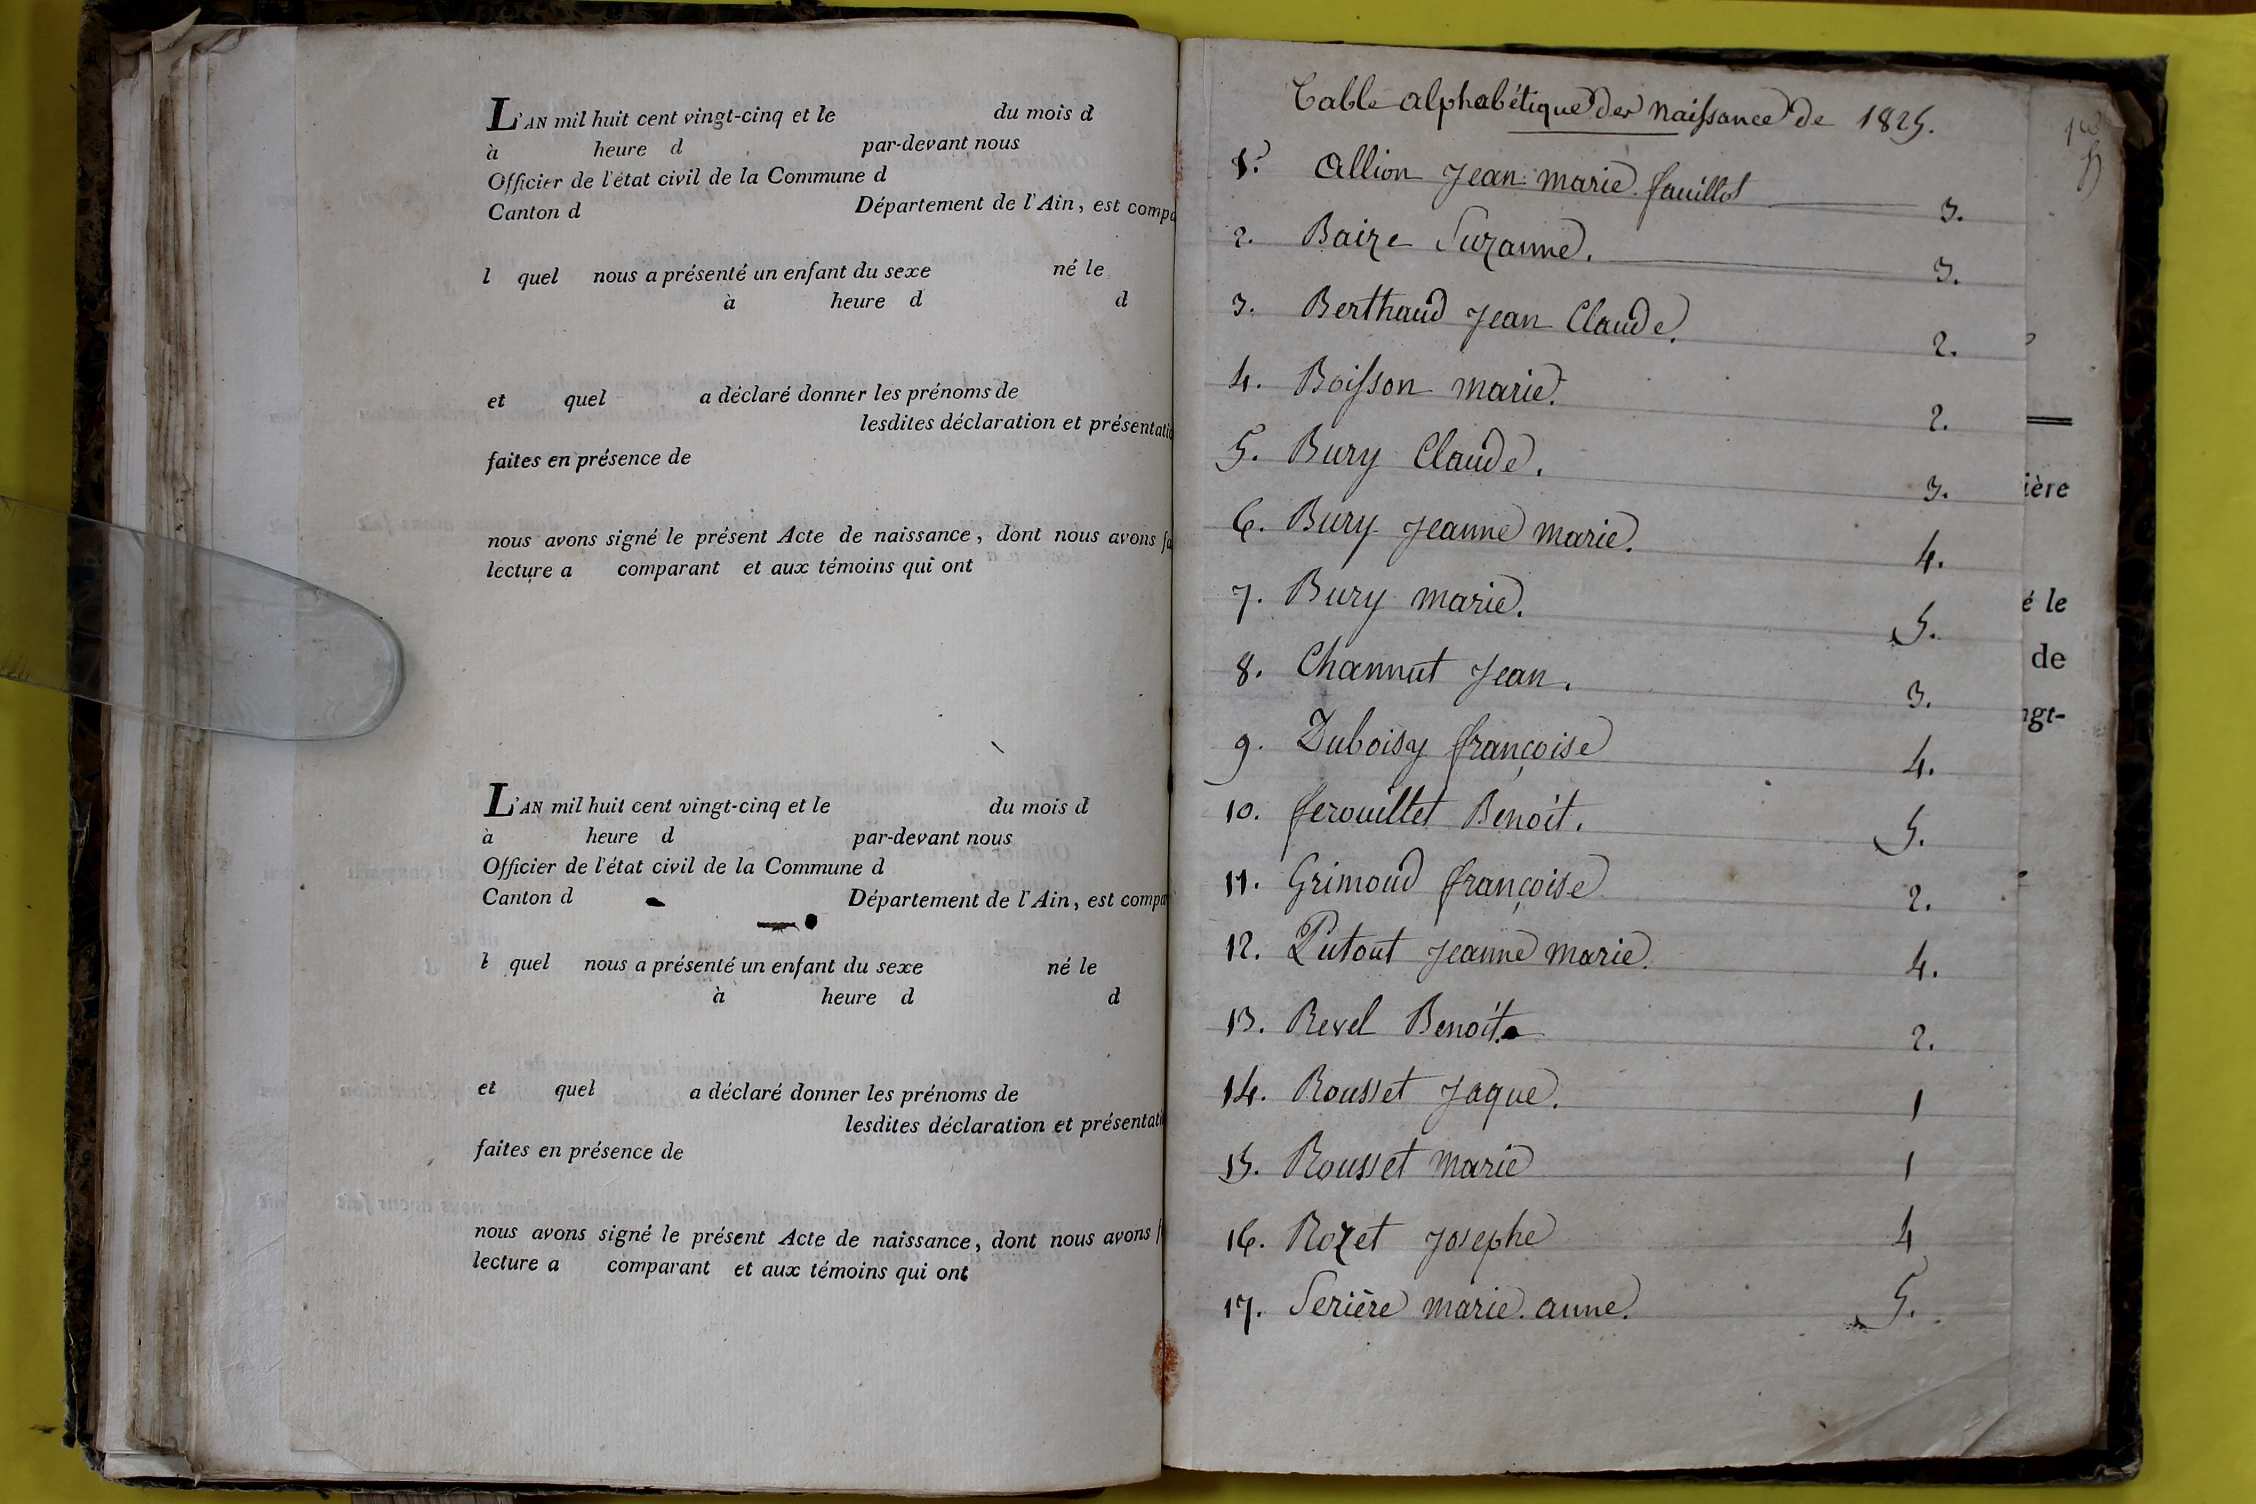 L'AN mil huit cent vingt-cinq et le du mois d
à heure d par-devant nous
Officier de l'état civil de la Commune d
Canton d Département de l'Ain, est compa
l quel nous a présenté un enfant du sexe né le
à heure d d
et quel a déclaré donner les prénoms de
lesdites déclaration et présentatio
faites en présence de
nous avons signé le présent Acte de naissance, dont nous avons fa
lecture a comparant et aux témoins qui ont
L'AN mil huit cent vingt-cinq et le du mois d
à heure d par-devant nous
Officier de l'état civil de la Commune d
Canton d Département de l'Ain, est compa
l quel nous a présenté un enfant du sexe né le
à heure d d
et quel a déclaré donner les prénoms de
lesdites déclaration et présentati
faites en présence de
nous avons signé le présent Acte de naissance, dont nous avons f
lecture a comparant et aux témoins qui ont
Table alphabétique des naissance de 1825.
1. Allion Jean marie fauillot 3.
2. Baize Suzanne. 3.
3. Berthaud Jean Claude. 2.
4. Boisson marie. 2.
5. Bury Claude. 3.
6. Bury Jeanne marie. 4.
7. Bury marie. 5.
8. Channut Jean. 3.
9. Duboisy françoise 4.
10. ferouillet Benoit. 5.
11. Grimoud françoise 2.
12. Putout Jeanne marie. 4.
13. Revel Benoit. 2.
14. Rousset Jaque. 1
15. Rousset marie 1
16. Rozet Josephe 4
17. Serière marie anne. 5.
ière
é le
de
ngt-